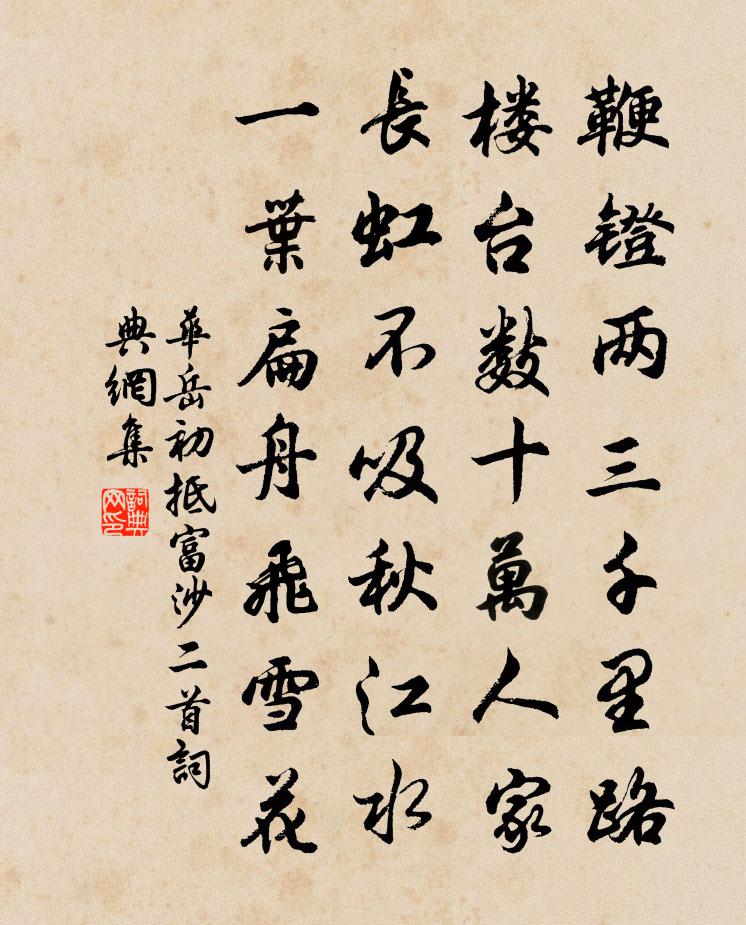 鞭镫两三千里路
楼台数十萬人家
長虹不吸秋江水
一葉扁舟飛雪花
華岳初抵富沙二首詞
典網集
詞典
网印